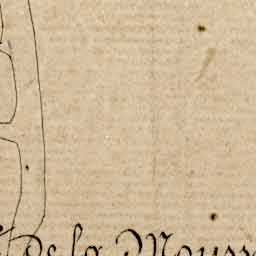 de la Mousse